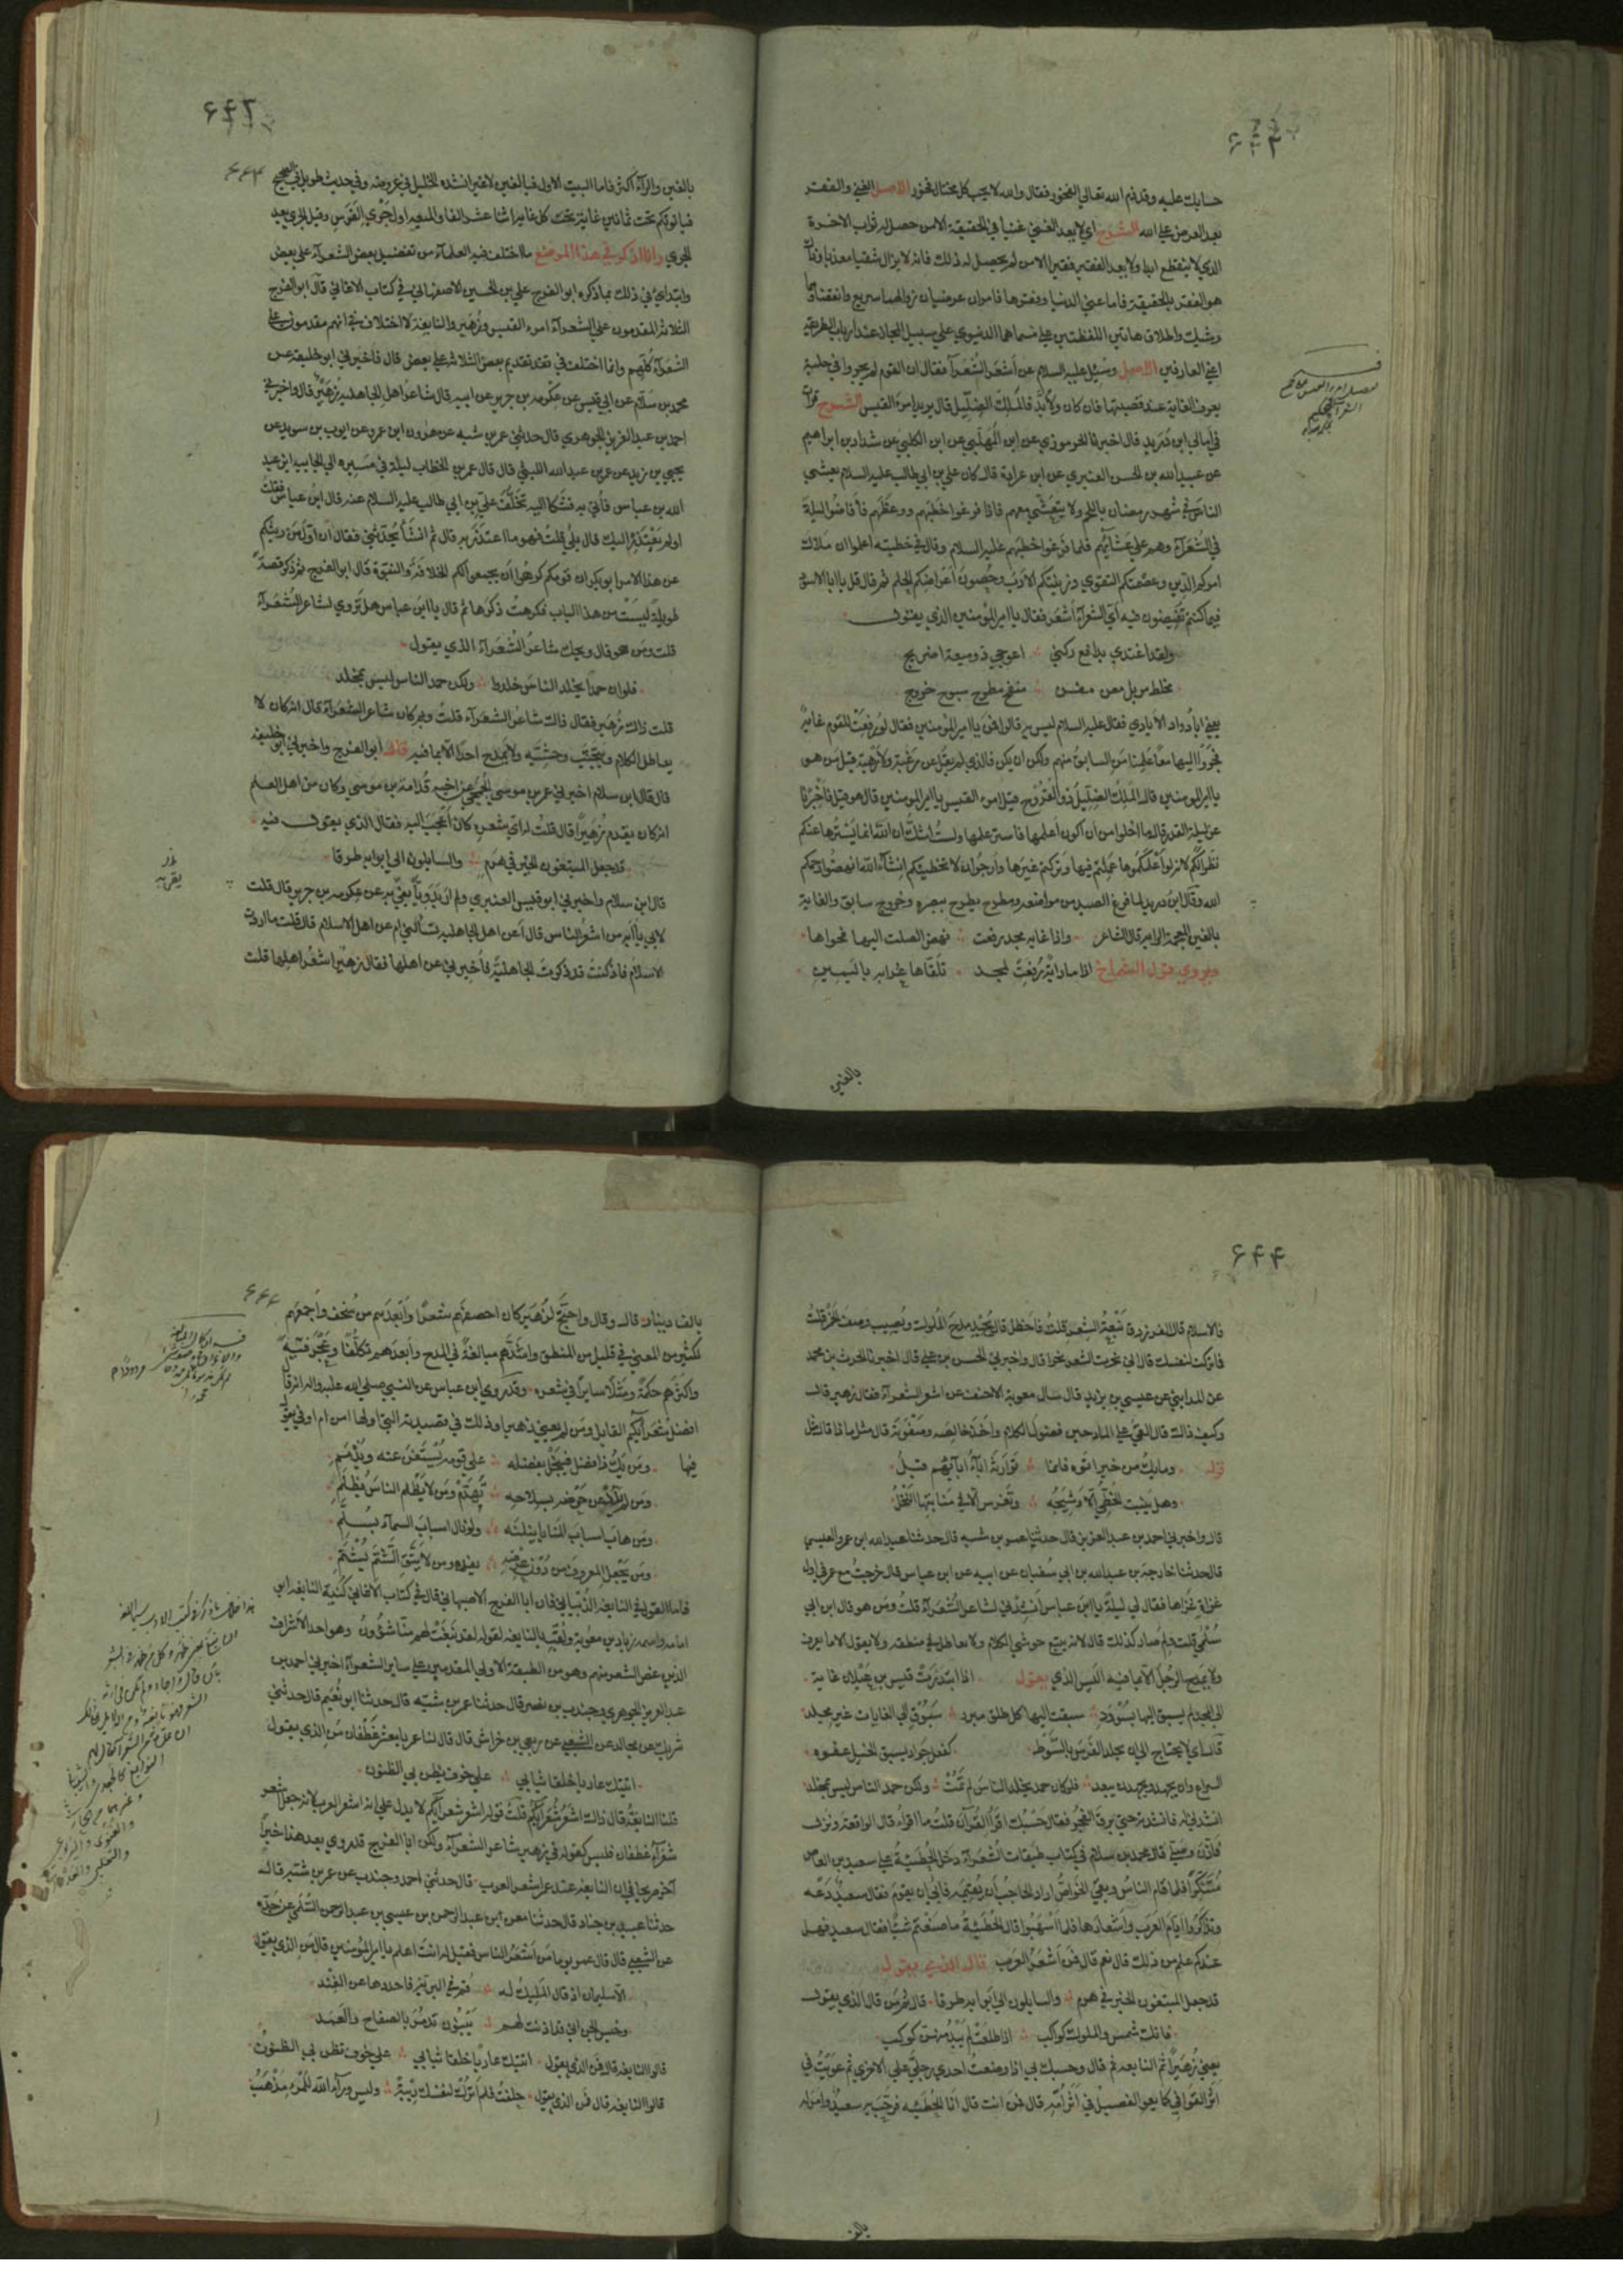 حسابك عليه وقد ذم الله تعالى الفخور فقال والله لا يحب كل مختال فخور الاصل الغنى والفقر
بعد العرض على الله الشرح اي لا يعد الغني غنيا في الحقيقة الا من حصل له ثواب الاخرة
الذي لا ينقطع ابدا ولا يعد الفقير فقيرا الا من لم يحصل له ذلك فانه لا يزال شقيا معذبا وذاك
هو الفقر بالحقيقة فاما غنى الدنيا وفقرها فامران عرضيان زوالهما سريع وانقضاؤهما
وشيك واطلاق هاتين اللفظتين على مسماهما الدنيوي على سبيل المجاز عند ارباب الطريقة
اعني العارفين الاصل وسئل عليه السلام عن أشعر الشعرآء فقال ان القوم لم يجروا في حلبة
يعرف الغاية عند قصبتها فان كان ولا بد فالملك الضليل قال يريد امرء القيس الشرح قرأت
في امالى ابن دريد قال اخبرنا الجرموزي عن ابن المهلبي عن ابن الكلبي عن شداد بن ابراهيم
عن عبيد الله بن الحسن العنبري عن ابن عرادة قال كان علي بن ابي طالب عليه السلام يعشي
الناس في شهر رمضان باللحم ولا يتعشى معهم فاذا فرغوا خطبهم ووعظهم فأفاضوا ليلة
في الشعرآء وهم على عشآئهم فلما فرغوا خطبهم عليه السلام وقال في خطبته اعلموا ان ملاك
امركم الدين وعصمتكم التقوي وزينتكم الادب وحصون أعراضكم الحلم ثم قال قل يا ابا الاسود
فيما كنتم تفيضون فيه أي الشعرآء أشعر فقال يا امير المؤمنين الذي يقول
ولقد اغتدي يدافع ركني اعوجي ذو ميعة اضريج
مخلط مزيل معن مفن منفح مطرح سبوح خروج
يعني ابا دواد الايادي فقال عليه السلام ليس به قالوا فمن يا امير المؤمنين فقال لو رفعت للقوم غاية
فجروا اليها معا علمنا من السابق منهم ولكن ان يكن فالذي لم يقل عن رغبة ولا رهبة قيل من هو
يا امير المؤمنين قال الملك الضليل ذو القروح قيل امرء القيس يا امير المؤمنين قال هو قيل فأخبرنا
عن ليلة القدر قال ما اخلوا من ان أكون أعلمها فاستر علمها ولست اشك أن الله انما يسترها عنكم
نظرا لكم لانه لو أعلمكموها عملتم فيها وتركتم غيرها وارجوا ان لا تخطيكم انشآء الله انهضوا رحمكم
الله وقال ابن دريد لما فرغ من الخبر اضريج
بالغين المعجمة الراية قال الشاعر واذا غاية مجد رفعت نهض الصلت اليها فحواها
ويروى قول الشماخ اذا ما راية رفعت لمجد تلقاها عرابة باليمين
بالغين
٦٤٢
بالغين والرآء أكثر فاما البيت الاول فبالغين لا غير انشده الخليل في عروضه وفي حديث طويل في الصحيح
فيأتونكم تحت ثمانين غاية تحت كل غاية اثنا عشر الفا والميعة اول جري الفرس وقيل الجري بعد
الجري وانا اذكر في هذا الموضع ما اختلف فيه العلمآء من تفضيل بعض الشعرآء على بعض
وابتدئ في ذلك بما ذكره ابو الفرج علي بن الحسين الاصفهاني في كتاب الاغاني قال ابو الفرج
الثلاثة المقدمون على الشعرآء امرء القيس وزهير والنابغة لا اختلاف في انهم مقدمون على
الشعرآء كلهم وانما اختلف في تقديم بعض الثلاثة على بعض قال فأخبرني ابو خليفة عن
محمد بن سلام عن ابي قيس عن عكرمة بن جرير عن ابيه قال شاعر اهل الجاهلية زهير قال واخبرني
احمد بن عبد العزيز الجوهري قال حدثني عمر بن شبه عن هرون ابن عمر وعن ايوب بن سويد عن
يحيى بن زيد عن عمر بن عبد الله الليثي قال قال عمر بن الخطاب ليلة في مسيره الى الجابية اين عبد
الله بن عباس فأتي به فشكا اليه تخلف علي بن ابي طالب عليه السلام عنه قال ابن عباس فقلت
اولم يعتذر اليك قال بلى قلت فهو ما اعتذر به قال ثم انشأ يحدثني فقال ان اول من ريثكم
عن هذا الامر ابو بكر ان قومكم كرهوا أن يجمعوا لكم الخلافة والنبوة قال ابو الفرج ثم ذكر قصة
طويلة ليست من هذا الباب فكرهت ذكرها ثم قال يا ابن عباس هل تروي لشاعر الشعرآء
قلت ومن هو قال ويحك شاعر الشعرآء الذي يقول
فلو ان حمدا يخلد الناس خلدوا ولكن حمد الناس ليس بمخلد
قلت ذاك زهير فقال ذاك شاعر الشعرآء قلت وبم كان شاعر الشعرآء قال انه كان لا
يعاظل الكلام ويتجنب وحشيه ولا يمدح احدا الا بما فيه قال ابو الفرج واخبرني ابو خليفة
قال قال ابن سلام اخبرني عمر بن موسى الجمحي عن اخيه قدامة بن موسى وكان من اهل العلم
انه كان يقدم زهيرا قال قلت له اي شعره كان أعجب اليه فقال الذي يقول فيه
قد جعل المبتغون الخير في هرم والسايلون الى ابوابه طرقا
قال ابن سلام واخبرني ابو قيس العنبري ولم ار بدويا يفي به عن عكرمة بن جرير قال قلت
لابي يا أبه من اشعر الناس قال أعن اهل الجاهلية تسألني ام عن اهل الاسلام قال قلت ما اردت
الا الاسلام فاذ كنت قد ذكرت الجاهلية فأخبرني عن اهلها فقال زهير اشعر اهلها قلت
٦٤٤
فالاسلام قال الفرزدق نبعة الشعر قلت فالاخطل قال يجيد مدح الملوك ويصيب وصف الخمر قلت
فما تركت لنفسك قال اني نحرت الشعر نحرا قال واخبرني الحسن بن علي قال اخبرنا الحرث بن محمد
عن المدايني عن عيسى بن يزيد قال سال معوية الاحنف عن اشعر الشعرآء فقال زهير قال
وكيف ذاك قال القى على المادحين فضول الكلام وأخذ خالصه وصفوته قال مثل ماذا قال مثل
قوله وما يك من خير اتوه فانما توارثه ابآء ابآئهم قبل
وهل ينبت الخطي الا وشيجه وتغرس الا في منابتها النخل
قال واخبرني احمد بن عبد العزيز قال حدثنا عمر بن شبه قال حدثنا عبد الله ابن عمرو القيسي
قال حدثنا خارجة بن عبد الله بن ابي سفيان عن ابيه عن ابن عباس قال خرجت مع عمر في اول
غزاة غزاها فقال لي ليلة يا ابن عباس أنشدني لشاعر الشعرآء قلت ومن هو قال ابن ابي
سلمى قلت ولم صار كذلك قال لانه لا يتبع حوشي الكلام ولا يعاظل في منطقه ولا يقول الا ما يعرف
ولا يمدح الرجل الا بما فيه اليس الذي يقول اذا ابتدرت قيس بن عيلان غاية
الى المجد من يسبق اليها يسود سبقت اليها كل طلق مبرز سبوق الى الغايات غير مجلد
قال اي لا يحتاج الى ان يجلد الفرس بالسوط كفعل جواد يسبق الخيل عفوه
السراع وان يجهد ويجهدن يبعد فلو كان حمد يخلد الناس لم تمت ولكن حمد الناس ليس بمخلد
انشدني له فانشدته حتى برق الفجر فقال حسبك اقرأ القرآن قلت ما اقرأ قال الواقعة ونزل
فأذن وصلى قال محمد بن سلام في كتاب طبقات الشعرآء دخل الحطيئة على سعيد بن العاص
متنكرا فلما قام الناس وبقي الخواص اراد الحاجب أن يقيمه فأبى ان يقوم فقال سعيد دعه
وتذاكروا ايام العرب وأشعارها فلما اسهبوا قال الحطيئة ما صنعتم شيئا فقال سعيد فهل
عندكم علم من ذلك قال نعم قال فمن أشعر العرب قال الذي يقول
قد جعل المبتغون الخير في هرم والسايلون الى أبوابه طرقا قال ثم من قال الذي يقول
فانك شمس والملوك كواكب اذا طلعت لم يبد منهن كوكب
يعني زهيرا ثم النابغة ثم قال وحسبك بي اذا وضعت احدى رجلي على الاخرى ثم عويت في
اثر القوافي كما يعوي الفصيل في أثر أمه قال فمن انت قال أنا الحطيئه فرحب به سعيد وامر له
بالف
بالف دينار قال وقال واحتج لزهير كان احصفهم شعرا وأبعدهم من سخف وأجمعهم
لكثير من المعنى في قليل من المنطق واشدهم مبالغة في المدح وأبعدهم تكلفا وعجرفية
واكثرهم حكمة ومثلا سايرا في شعره وقد روى ابن عباس عن النبي صلى الله عليه واله انه قال
افضل شعرآئكم القايل ومن من يعني زهيرا وذلك في قصيدته التي اولها امن ام اوفى يقول
فيها ومن يك ذا فضل فيبخل بفضله على قومه يستغن عنه ويذمم
ومن لم يذد عن حوضه بسلاحه يهدم ومن لا يظلم الناس يظلم
ومن هاب اسباب المنايا ينلنه ولو نال اسباب السمآء بسلم
ومن يجعل المعروف من دون عرضه يفره ومن لا يتق الشتم يشتم
فاما القول في النابغة الذبياني فان ابا الفرج الاصبهاني قال في كتاب الاغاني كنية النابغه ابو
امامه واسمه زياد بن معوية ولقب بالنابغه لقوله لقد نبغت لهم منا شؤون وهو احد الاشراف
الذين غض الشعر منهم وهو من الطبقة الاولى المقدمين على ساير الشعرآء اخبرني احمد بن
عبد العزيز الجوهري وحبيب بن نصر قال حدثنا عمر بن شبه قال حدثنا ابو نعيم قال حدثني
شريك عن مجالد عن الشعبي عن ربعي بن خراش قال قال لنا عمر يا معشر غطفان من الذي يقول
اتيتك عاريا خلقا ثيابي على خوف تظن بي الظنون
قلنا النابغة قال ذاك اشعر شعرآئكم قلت قوله اشعر شعرآئكم لا يدل على انه اشعر العرب لانه جعله اشعر
شعرآء غطفان فليس كقوله في زهير شاعر الشعرآء ولكن ابا الفرج قد روى بعد هذا خبرا
آخر صريحا في ان النابغه عند عمر اشعر العرب قال حدثني احمد وحبيب عن عمر بن شبه قال
حدثنا عبيد بن جناد قال حدثنا معن ابن عبد الرحمن بن عيسى بن عبد الرحمن السلمي عن جده
عن الشعبي قال قال عمر يوما من أشعر الناس فقيل له انت اعلم يا امير المؤمنين قال من الذي يقول
الا سليمان اذ قال المليك له قم في البرية فاحددها عن الفند
وخيس الجن اني قد اذنت لهم يبنون تدمر بالصفاح والعمد
قالوا النابغة قال فمن الذي يقول اتيتك عاريا خلقا ثيابي على خوف تظن بي الظنون
قالوا النابغه قال فمن الذي يقول حلفت فلم اترك لنفسك ريبة وليس ورآء الله للمرء مذهب